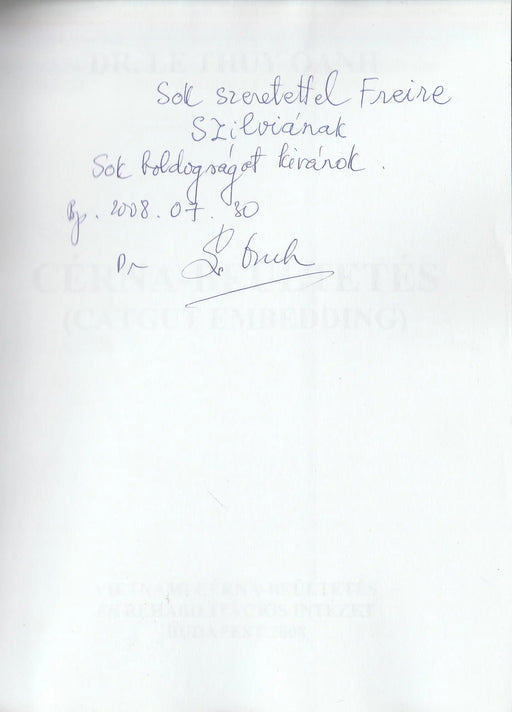 Sok szeretettel Freire
Szilviának
Sok boldogságot kivánok .
Bp. 2008. 07. 30
Dr
DR. LE THUY OANH
CÉRNA-BEÜLTETÉS
(CATGUT EMBEDDING)
VIETNAMI CÉRNA-BEÜLTETÉS
ÉS REHABILITÁCIÓS INTÉZET
BUDAPEST 2008